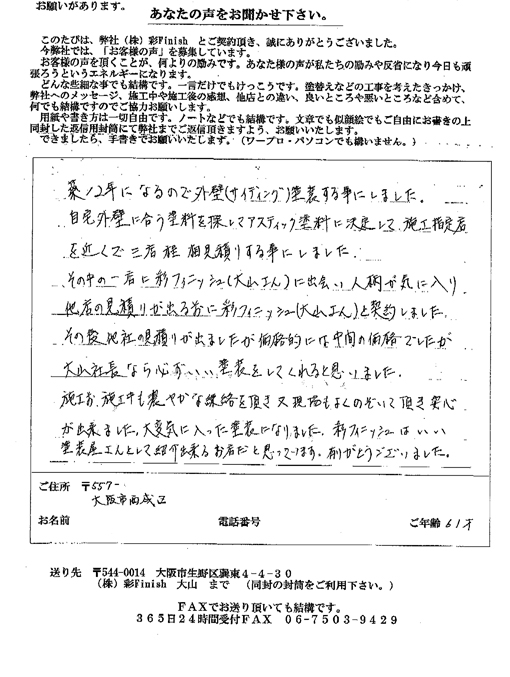 お願いがあります。
あなたの声をお聞かせ下さい。
このたびは、弊社（株）彩Finish とご契約頂き、誠にありがとうございました。
今弊社では、「お客様の声」を募集しています。
お客様の声を頂くことが、何よりの励みです。あなた様の声が私たちの励みや反省になり今日も頑
張ろうというエネルギーになります。
どんな些細な事でも結構です。一言だけでもけっこうです。塗替えなどの工事を考えたきっかけ、
弊社へのメッセージ、施工中や施工後の感想、他店との違い、良いところや悪いところなど含めて、
何でも結構ですのでご協力お願いします。
用紙や書き方は一切自由です。ノートなどでも結構です。文章でも似顔絵でもご自由にお書きの上
同封した返信用封筒にて弊社までご返信頂きますよう、お願いいたします。
できましたら、手書きでお願いいたします。（ワープロ・パソコンでも構いません。）
築12年になるので外壁(サイディング)塗装する事にしました。
自宅外壁に合う塗料を探してアステック塗料に決定して施工指定店
を近くで三店程相見積りする事にしました。
その中の一店に彩フィニッシュ(大山さん)に出会い人柄が気に入り
他店の見積りが出る前に彩フィニッシュ(大山さん)と契約しました。
その後他社の見積りが出ましたが価格的には中間の価格でしたが
大山社長なら必ずいい塗装をしてくれると思いました。
施工前、施工中も豊やかな連絡を頂き又現場もよくのぞいて頂き安心
が出来ました。大変気に入った塗装になりました。彩フィニッシュはいい
塗装屋さんとして紹介出来るお店だと思っています。有がとうございました。
ご住所 〒557-
大阪市西成区
お名前 電話番号 ご年齢 61才
送り先 〒544-0014 大阪市生野区巽東4-4-30
（株）彩Finish 大山 まで （同封の封筒をご利用下さい。）
FAXでお送り頂いても結構です。
365日24時間受付FAX 06-7503-9429